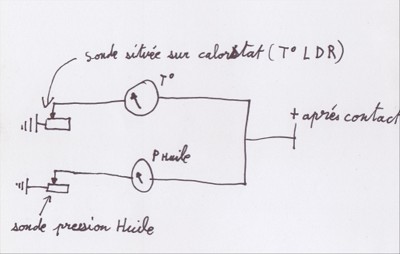 Sonde située sur calorstat (T° LDR)
T°
+ aprés contact
P Huile
sonde pression Huile